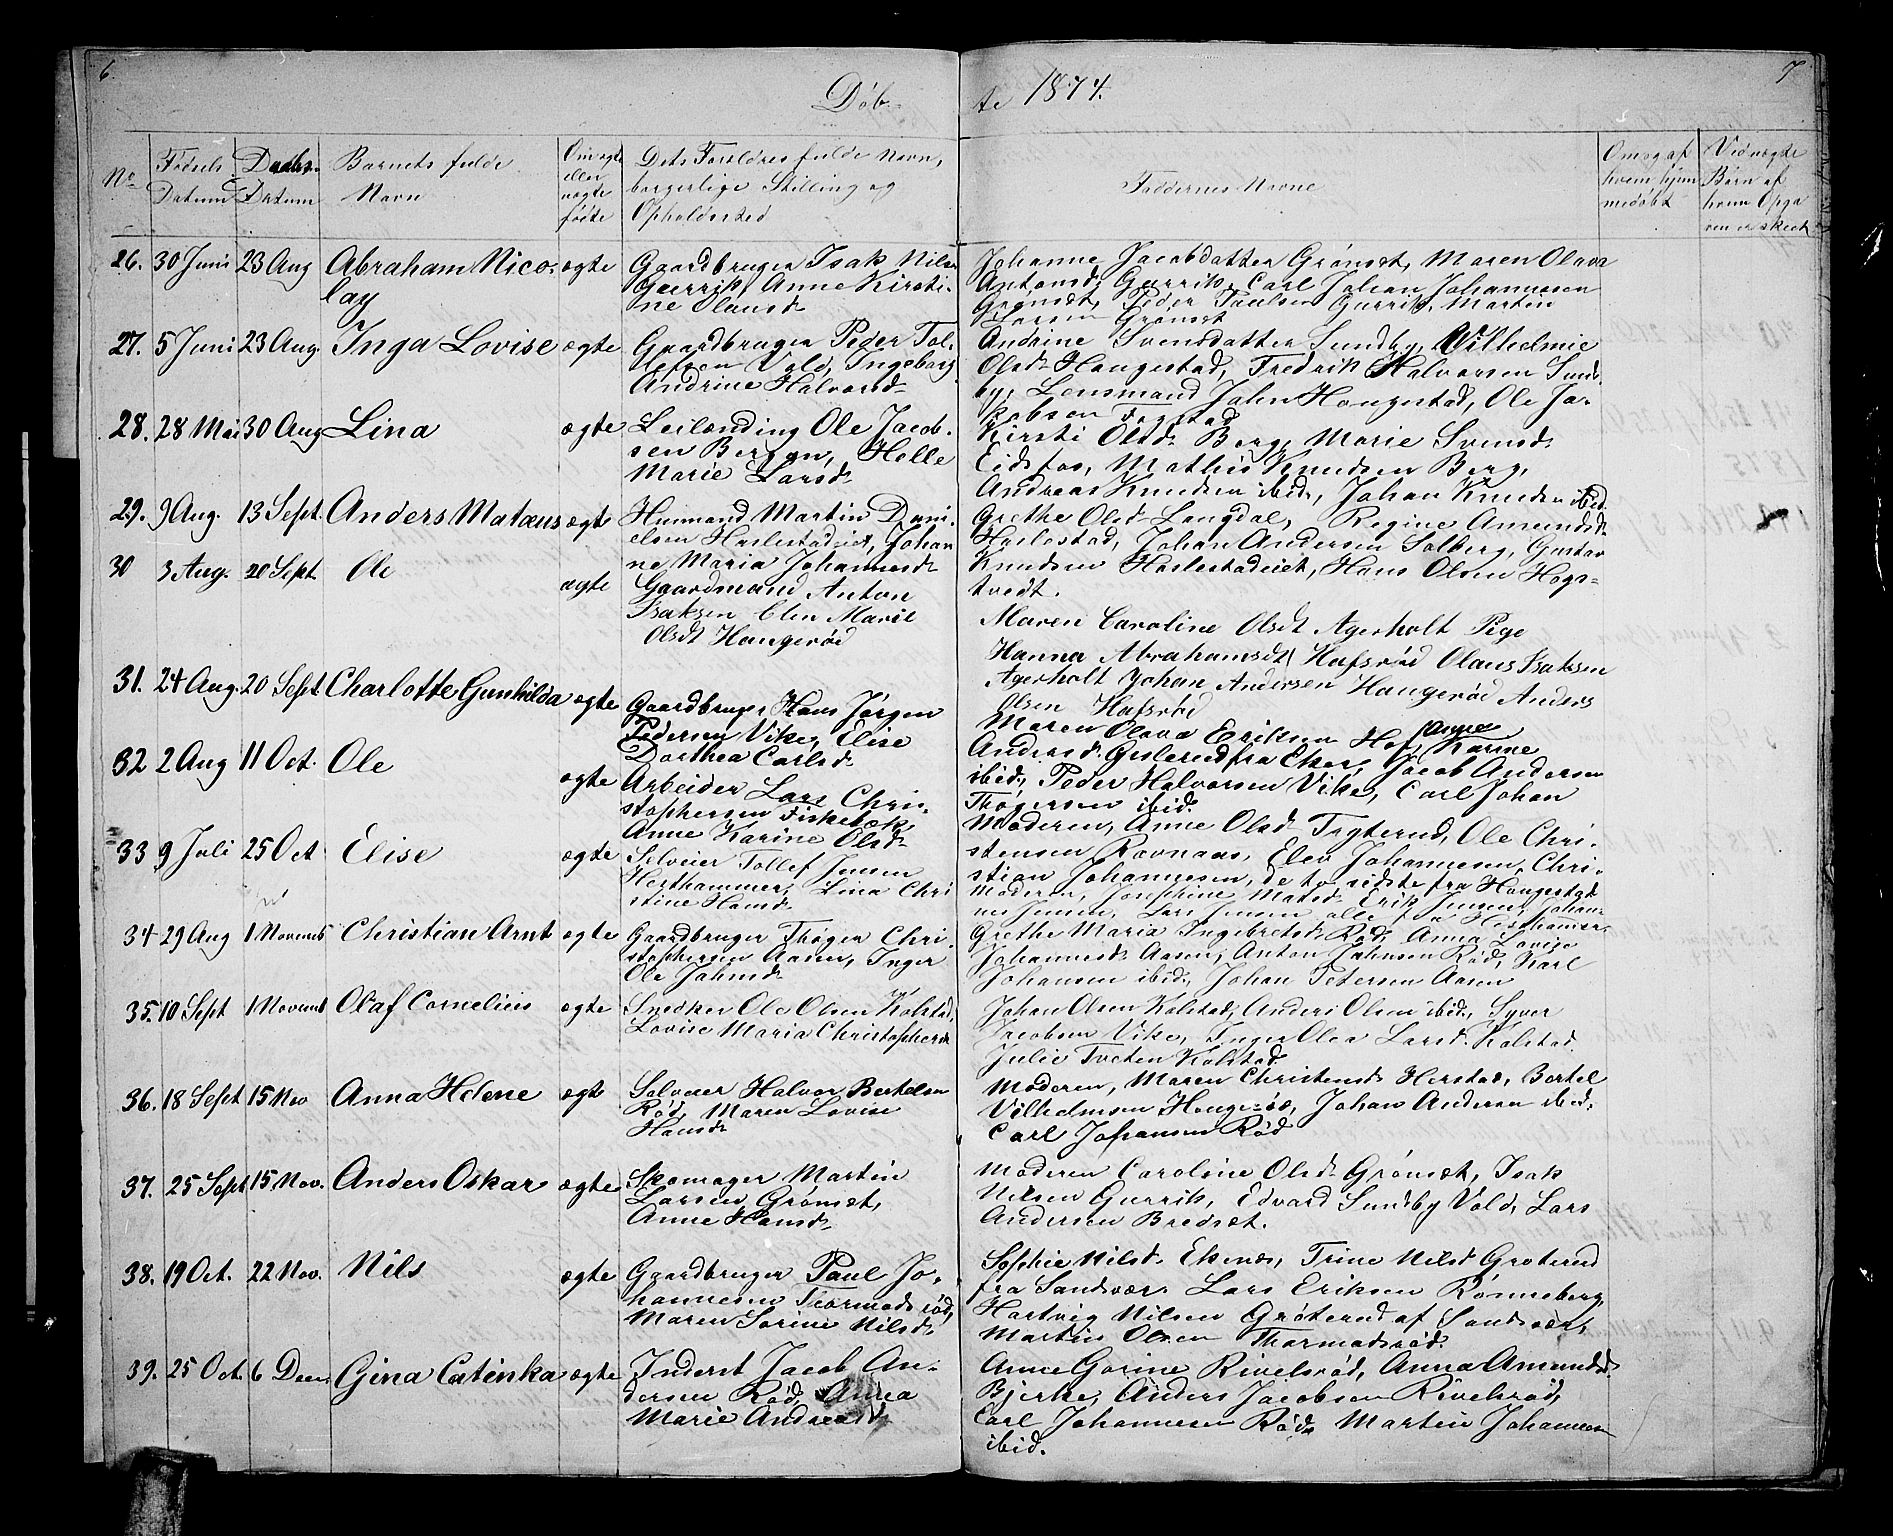 6
7
Døb-
te 1874.
No
Fødsels Datum
Daabs Datum
Barnets fulde Navn
Om ægte eller uægte fødte
Dets Forældres fulde Navn,
borgerlige Stilling og
Opholdssted
Faddernes Navne
Om og af hvem hjemmedøbt
Ved uægte Børn af hvem Opgaven er skeet
26. 30 Juni 23 Aug Abraham Nico- ægte Gaardbruger Isak Nilsen
lay Gurrik, Anne Kirsti-
ne Olausd.
Johanne Jacobdatter Grønset, Maren Olava
Antonsd. Gurrik, Carl Johan Johannesen
Grønset, Peder Paulsen Gurrik, Martin
Larsen Grønset
27. 5 Juni 23 Aug. Inga Lovise ægte Gaardbruger Peder Tol-
lefsen Vold, Ingeborg
Andrine Halvorsd.
Andrine Svensdatter Sundby, Vilhelmie
Olsd. Haugestad, Fredrik Halvorsen Sund-
by, Lensmand John Haugestad, Ole Ja-
kobsen Fogstad
28. 28 Mai 30 Aug Lina ægte Leilænding Ole Jacob-
sen Bergan, Helle
Marie Larsd.
Kirsti Olsd. Berg, Marie Svensd.
Eidsfos, Mathis Knudsen Berg,
Andreas Knudsen ibid, Johan Knudsen ibid.
29. 9 Aug. 13 Sept. Anders Matæus ægte Husmand Martin Dani-
elsen Haslestadeiet, Johan-
ne Maria Johannesd.
Grethe Olsd. Langdal, Regine Amundsd.
Haslestad, Johan Andersen Solberg, Gustav
Knudsen Haslestadeiet, Hans Olsen Hogs-
tvedt.
30 3 Aug. 20 Sept. Ole ægte Gaardmand Anton
Isaksen Elen Marie
Olsdt Haugerød
Maren Caroline Olsdt Agerholt Pige
Hanna Abrahamsdt Hafsrød Olaus Isaksen
Agerholt Johan Andersen Haugerød Anders
Olsen Hafsrød
31. 24 Aug. 20 Sept. Charlotte Gunhilda ægte Gaardbruger Hans Jørgen
Pedersen Vike, Elise
Dorthea Carlsd.
Maren Olava Eriksen Hof, Anne Karine
Andersd. Gislerud fra Eker, Jacob Andersen
ibid, Peder Halvorsen Vike, Carl Johan
Thøgersen ibid.
32 2 Aug 11 Oct. Ole ægte Arbeider Lars Chri-
stophersen Fiskebæk,
Anne Karine Olsd.
Moderen, Anne Olsd. Tryterud, Ole Chri-
stensen Ravnaas, Elev Johannesen, Chri-
stian Johannesen, de to sidste fra Haugestad
33 9 Juli 25 Oct Elise ægte Selveier Tollef Jensen
Hesthammer, Lina Chri
stine Hansd.
Moderen, Josephine Matsd. Erik Jensen, Johan-
nes Jensen, Lars Jensen alle fra Hesthamer
34 29 Aug 1 Novemb Christian Arnt ægte Gaardbruger Thøger Chri-
stophersen Aasen, Inger
Ole Jahnsd.
Grethe Maria Ingebretsd. Rød, Anna Lovise
Johannesd. Aasen, Anton Jahnsen Rød, Karl
Johansen ibid, Johan Petersen Aasen
35. 10 Sept 1 Novemb Olaf Cornelius ægte Snedker Ole Olsen Kolstad,
Lovise Maria Christophersd.
Johan Olsen Kolstad, Anders Olsen ibid, Syver
Jacobsen Vike, Inger Olea Larsd. Kolstad.
Julie Tveten Kolstad
36. 18 Sept 15 Nov Anna Helene ægte Selveier Halvor Bertelsen
Rød, Maren Lovise
Hansd.
Moderen, Maren Christensd. Herstad, Bertel
Vilhelmsen Haugerød, Johan Andersen ibid,
Carl Johansen Rød
37. 25 Sept 15 Nov. Anders Oskar ægte Skomager Martin
Larsen Grønset,
Anne Hansd.
Moderen Caroline Olsd. Grønset, Isak
Nilsen Gurrik, Edvard Sundby Vold, Lars
Andersen Bredset.
38. 19 Oct. 22 Nov. Nils ægte Gaardbruger Paul Jo-
hannesen Thormodsrød,
Maren Sorine Nilsd.
Sophie Nilsd. Ekenes, Trine Nilsd Grøterud
fra Sandsvær. Lars Eriksen Rønneberg,
Hartvig Nilsen Grøterud af Sandsvær,
Martin Olsen Thormodsrød.
39. 25 Oct. 6 Decm. Gina Catinka ægte Inderst Jacob An-
dersen Rød, Anna
Marie Andreasd.
Anne Gorine Rivelsrød, Anna Amundsd.
Bjerke, Anders Jacobsen Rivelsrød,
Carl Johannesen Rød Martin Johannesen
ibid.